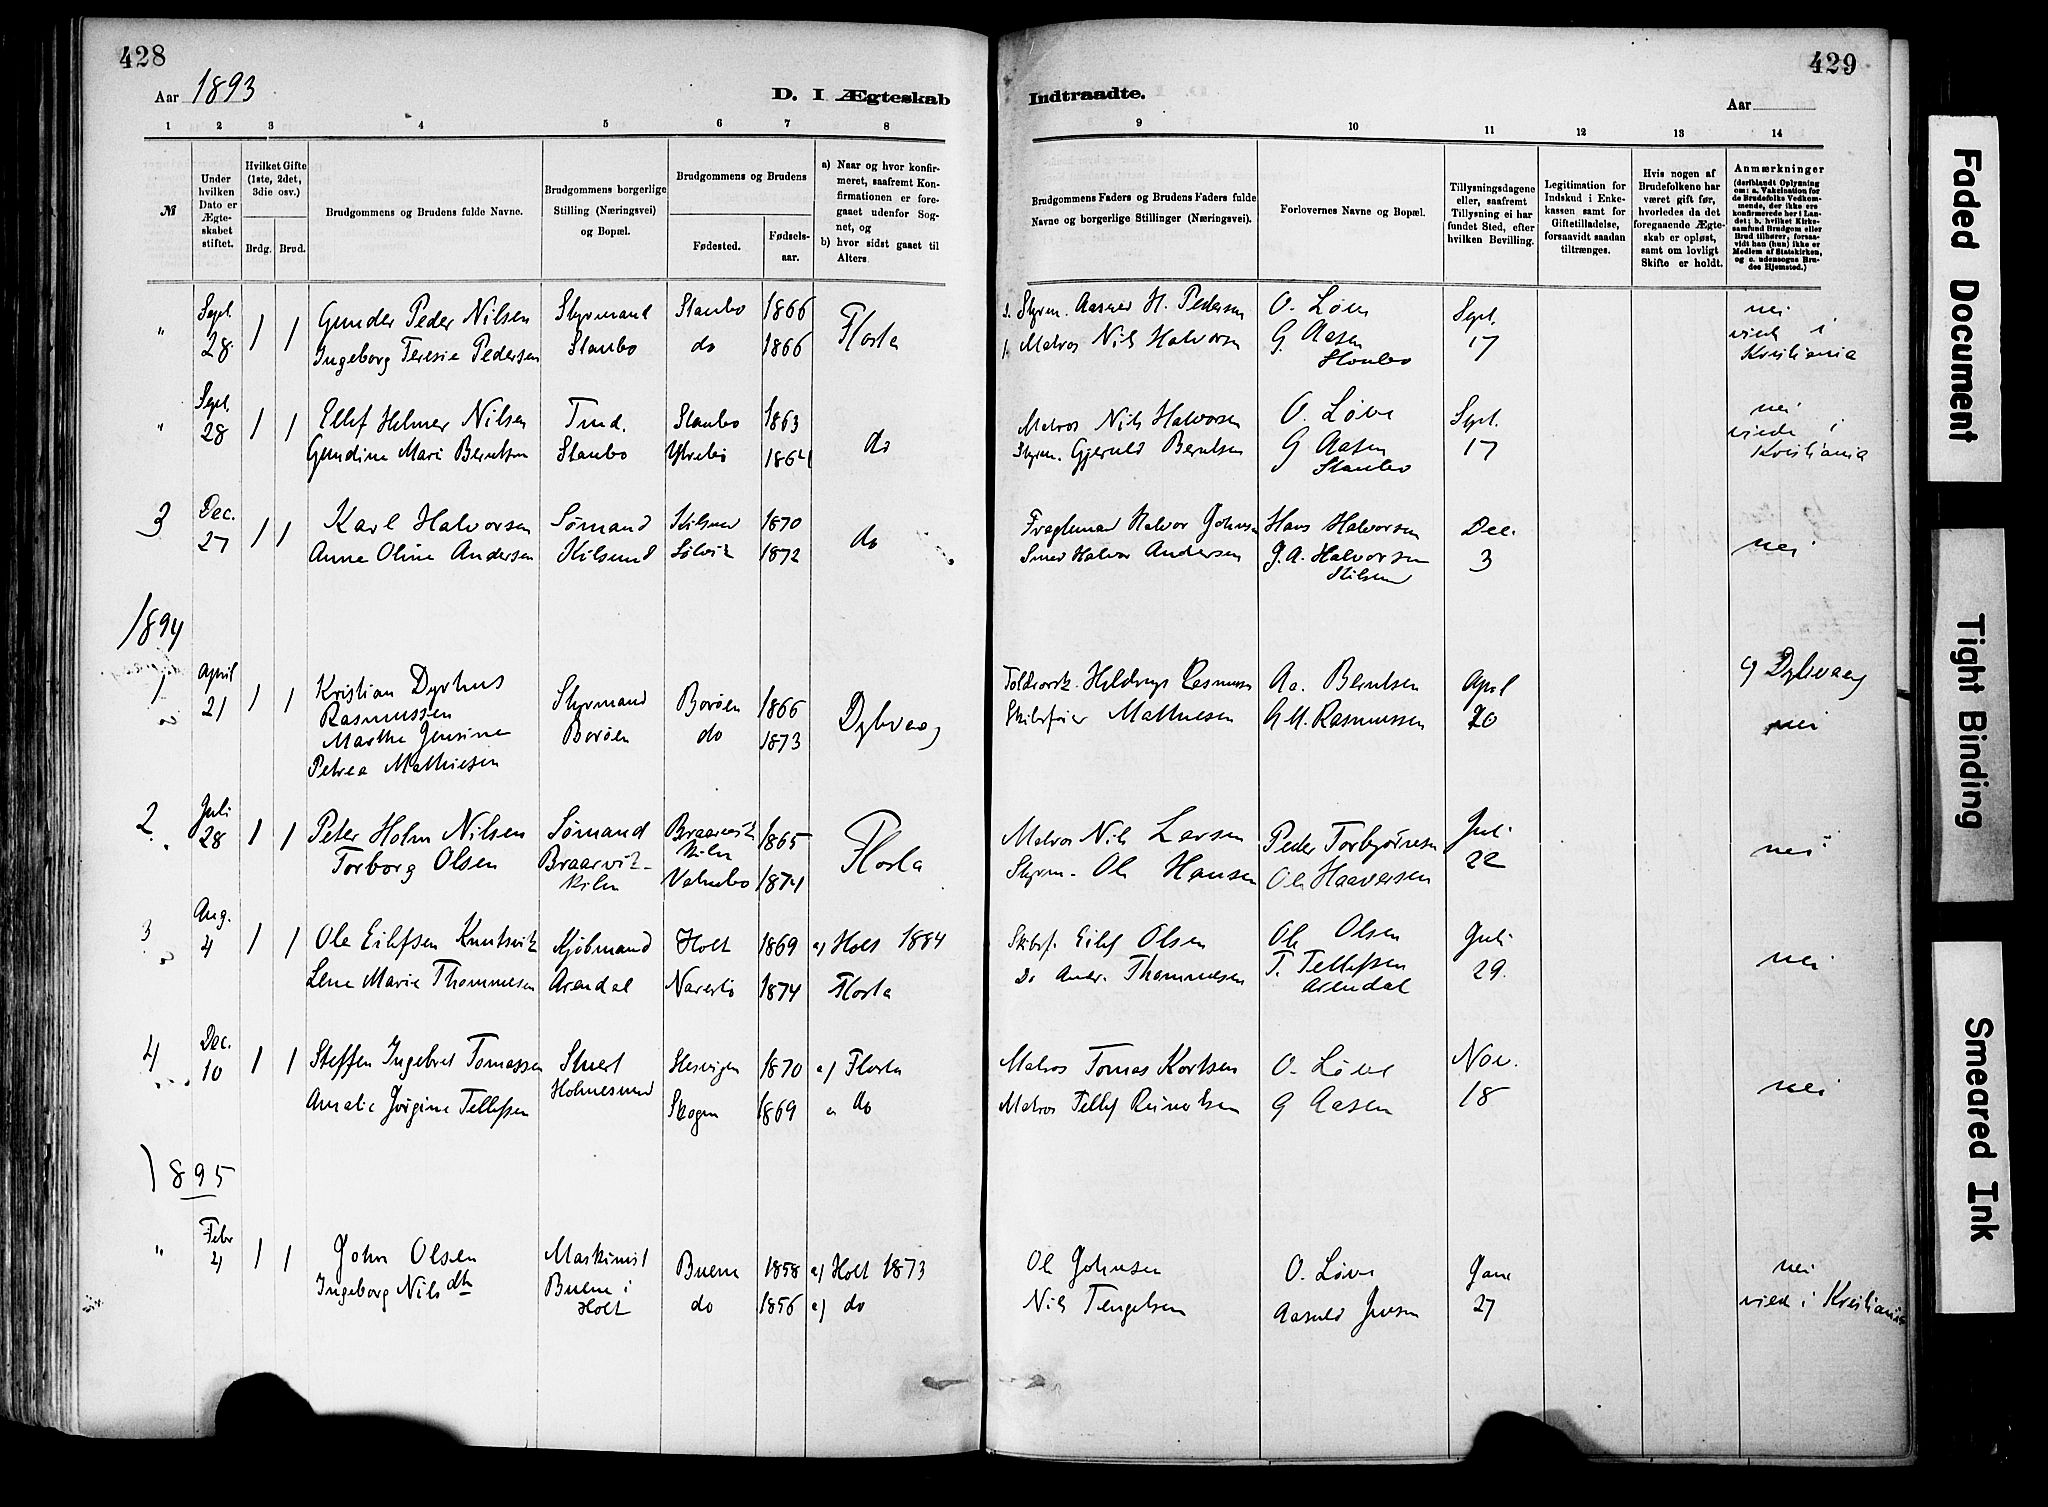 428
Aar 1893
D. I Ægteskab
1 2 3 4 5 6 7 8
№
Under hvilken Dato er Ægteskabet stiftet.
Hvilket Gifte (1ste, 2det, 3die osv.)
Brdg. Brud.
Brudgommens og Brudens fulde Navne.
Brudgommens borgerlige Stilling (Næringsvei) og Bopæl.
Brudgommens og Brudens
Fødested.
Fødselsaar.
a) Naar og hvor konfirmeret, saafremt Konfirmationen er foregaaet udenfor Sognet, og
b) hvor sidst gaaet til Alters.
" Sept. 28. 1 1 Gunder Peder Nilsen Styrmand Staubo 1866 Flosta
Ingeborg Teresie Pedersen Staubo do 1866
" Sept. 28 1 1 Ellef Helmer Nilsen Tmd. Staubo 1863
Gundine Mari Berntsen Staubo 1864 do
3 Dec. 27 1 1 Karl Halvorsen Sømand Kilsund 1870
Anne Oline Andersen Kilsund 1872 do
1894
1 April 21 1 1 Kristian Dyrhus
Rasmussen Styrmand Borøen 1866 Dybvaag
Marthe Jensine Borøen do 1873
Petrea Mathiesen
2 Juli 28 1 1 Peter Holm Nilsen Sømand Braarvik kiln 1865 Flosta
Torborg Olsen Braarvik- kiln 1874
3 Aug. 4 1 1 Ole Eilefsen Knutsvik Kjøbmand Holt 1869 a) Holt 1884
Lene Marie Thommesen Arendal Narestø 1874 Flosta
4 Dec. 10 1 1 Steffen Ingebret Tomassen Stuert 1870 a) Flosta
Amalie Jørgine Tellefsen Holmesund Skogen 1869 " do
1895
" Febr 4 1 1 John Olsen Maskinist Buene 1858 a) Holt 1873
Ingeborg Nilsdtr Buene i Holt do 1856 a) do
429
Indtraadte.
Aar
9 10 11 12 13 14
Brudgommens Faders og Brudens Faders fulde Navne og borgerlige Stillinger (Næringsvei).
Forlovernes Navne og Bopæl.
Tillysningsdagene eller, saafremt Tillysning ei har fundet Sted, efter hvilken Bevilling.
Legitimation for Indskud i Enkekassen samt for Giftetilladelse, forsaavidt saadan tiltrænges.
Hvis nogen af Brudefolkene har været gift før, hvorledes da det foregaaende Ægteskab er opløst, samt om lovligt Skifte er holdt.
Anmærkninger
(deriblandt Oplysning om: a. Vakcination for de Brudefolks Vedkommende, der ikke ere konfirmerede her i Landet; b. hvilket Kirkesamfund Brudgom eller Brud tilhører, forsaavidt han (hun) ikke er Medlem af Statskirken, og c. udensogns Brudes Hjemsted.)
Styrm. Aasner H. Pedersen O. Løve Sept. nei
Matros Nils Halvorsen G. Aasen 17 viede i
Staubo Kristiania
Matros Nils Halvorsen O. Løve Sept. nei
Styrm. Gjeruld Berntsen G Aasen 17 viede i
Staubo Kristiania
Halvor Johnsen Hans Halvorsen Dec.
Smed Halvor Andersen G. A. Halvorsen 3 nei
Kilsund
Rasmussen Aa. Berntsen April c) Dybvaag
Skibsfører Mathiesen G M. Rasmussen 20 nei
Matros Nils Larsen Peder Torbjørnsen Juli
Styrm. Ole Hansen Ole Haaversen 22 nei
Skibsf. Eilef Olsen Ole Olsen Juli
Do Andr. Thommesen T. Tellefsen 29. nei
Arendal
Matros Tomas Kortsen O. Løve Nov.
Matros Tellef G Aasen 18 nei
Ole Johnsen O. Løve Jan nei
Nils Tengelsen Aasuld Jensen 27 viede i Kristiania
Faded Document
Tight Binding
Smeared Ink